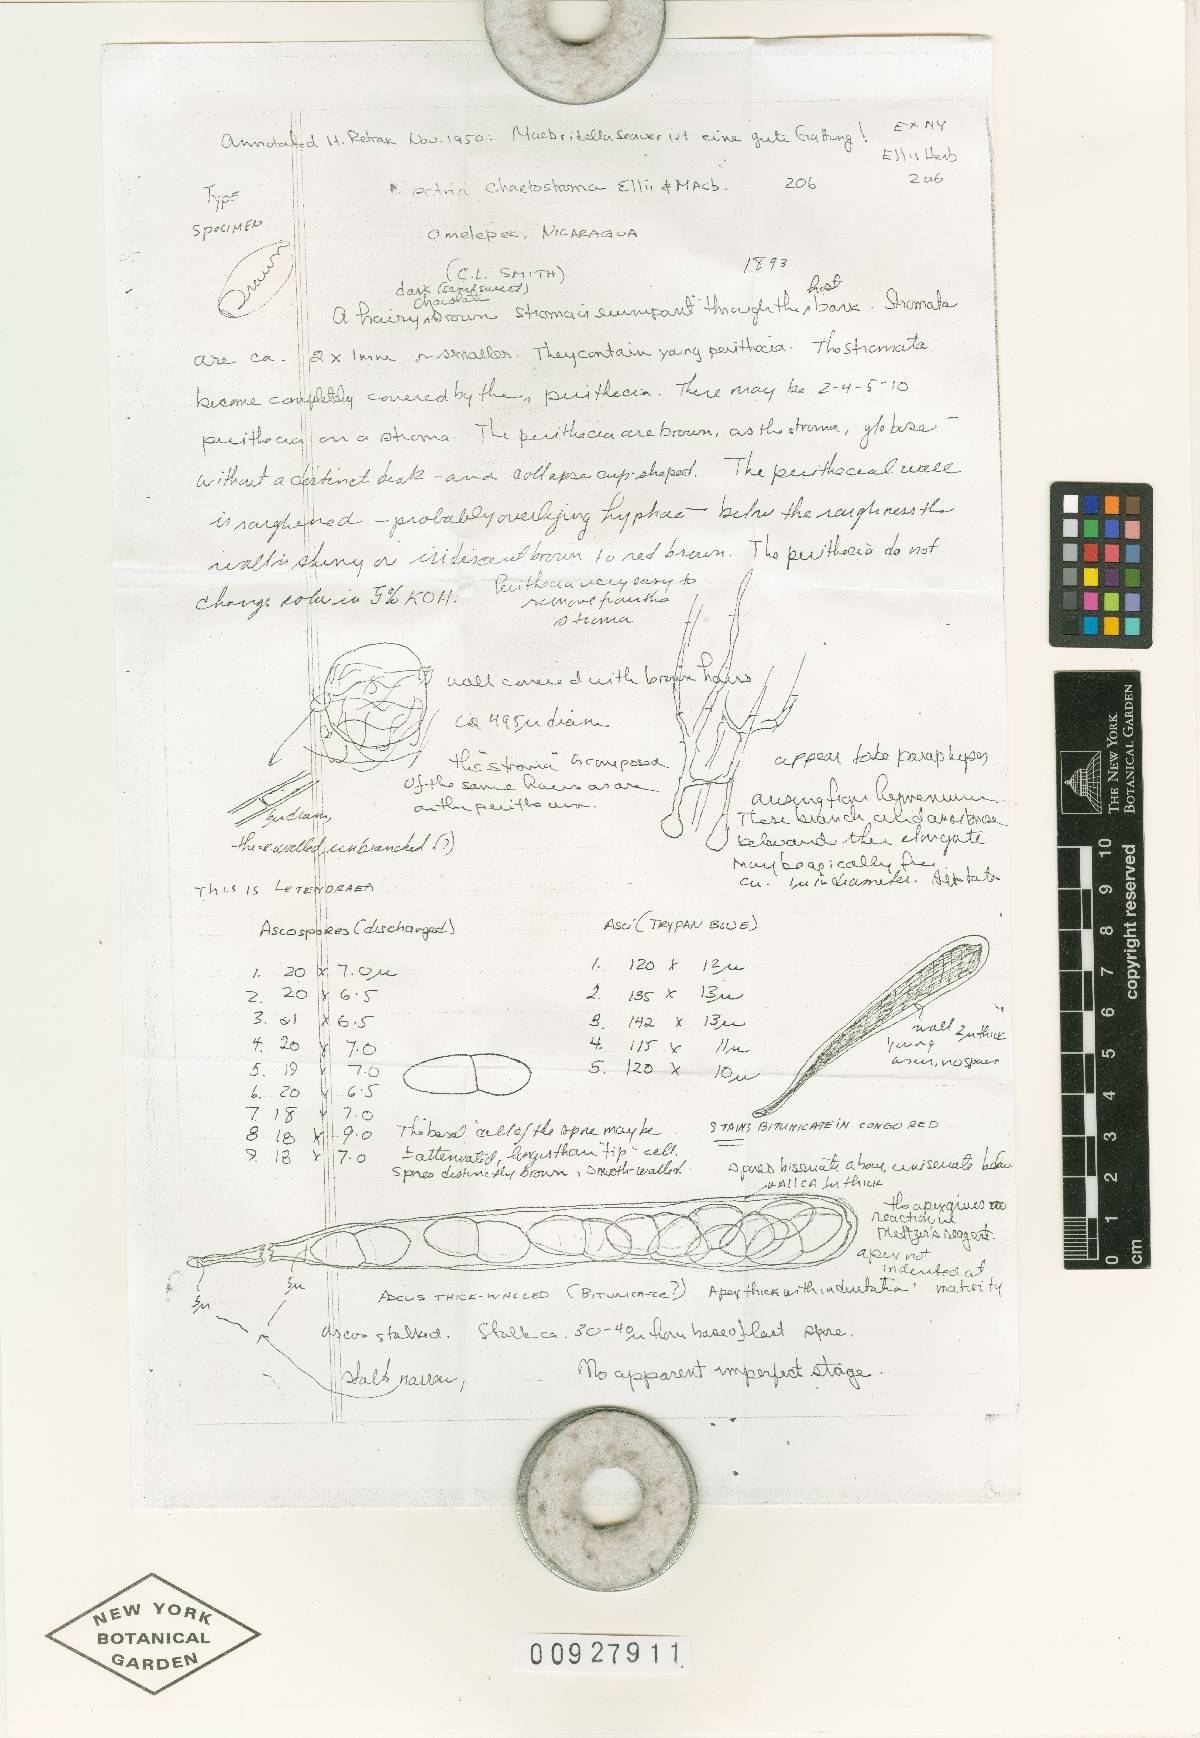 Annotated H. Petrak Nov. 1950: Macbridella Seaver ist eine gute Gattung!
Ex NY
Ellis Herb
206
Type
Specimen
Nectria chaetostroma Ellis & Macb. 206
Omotepek, NICARAGUA
(C.L. SMITH) 1893
Drawn
dark (semisweet)
chocolate
host
A hairy, brown stroma is errumpant through the bark. Stromata
are ca. 2 x 1mm or smaller. They contain young perithecia. The stromata
become completely covered by the perithecia. There may be 2-4-5-10
perithecia on a stroma. The perithecia are brown, as the stroma, globose
without a distinct beak - and collapse cup-shaped. The perithecial wall
is roughened - probably overlying hyphae - below the roughness the
wall is shiny or iridescent brown to red brown. The perithecia do not
change color in 5% KOH.
Perithecia very easy to
remove from the
stroma
wall covered with brown hairs
ca 495µ diam
the "stroma" is composed
of the same hairs as are
on the perithecium.
diam,
thick walled, unbranched (?)
appear to be paraphyses
arising from hymenium
These branch and anastomose
below and then elongate
may be apically free
ca. 1µ in diameter. Septate
THIS IS LETENDRAEA
Ascospores (discharged)
1. 20 x 7.0µ
2. 20 x 6.5
3. 21 x 6.5
4. 20 x 7.0
5. 19 x 7.0
6. 20 x 6.5
7. 18 x 7.0
8 18 x 9.0
9. 18 x 7.0
Asci (TRYPAN BLUE)
1. 120 x 12µ
2. 135 x 13µ
3. 142 x 13µ
4. 115 x 11µ
5. 120 x 10µ
wall 2µ thick
young
ascus, no spores
The basal cell of the spore may be
± attenuated, longer than "tip" cell.
Spores distinctly brown, smooth-walled.
STAINS BITUNICATE IN CONGO RED
spores biseriate above, uniseriate below
WALL CA 1µ THICK
the apex gives no
reaction in
Meltzer's reagent.
apex not
indented at
maturity
3µ
5µ
ASCUS THICK-WALLED (BITUNICATE?) Apex thick with indentation
ascus stalked. Stalk ca. 30-40µ from base of last spore.
stalk narrow,
No apparent imperfect stage.
THE NEW YORK
BOTANICAL GARDEN
copyright reserved
10
9
8
7
6
5
4
3
2
1
0
cm
NEW YORK
BOTANICAL
GARDEN
00927911